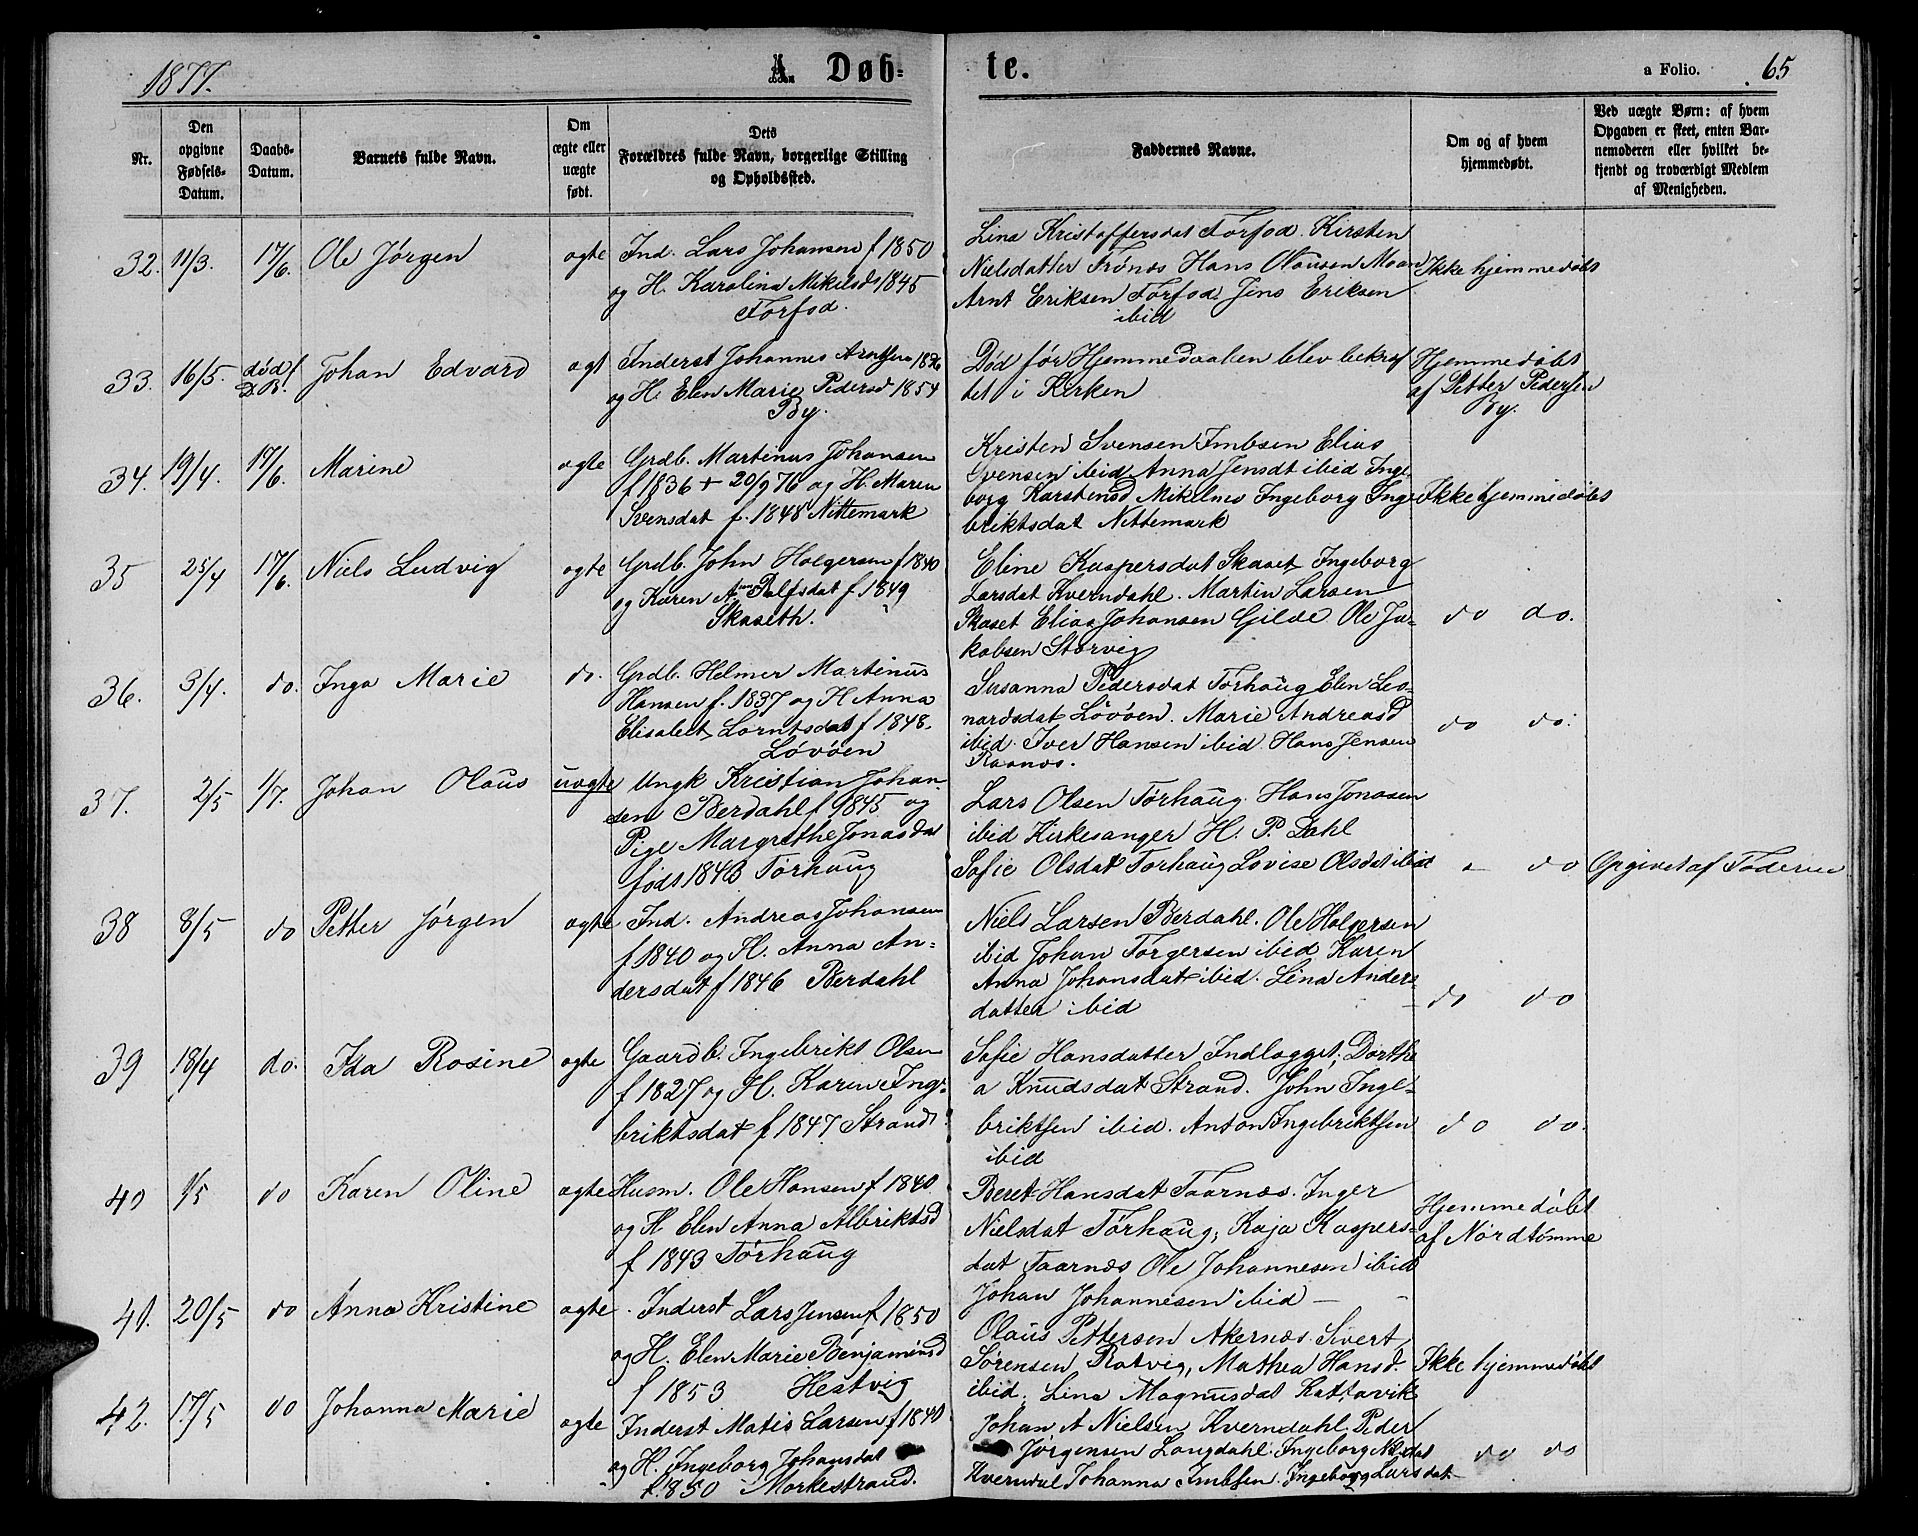 1877.
A. Døb-
te.
a Folio.
65
Nr.
Den
opgivne
Fødsels-
Datum.
Daabs-
Datum.
Barnets fulde Navn.
Om
ægte eller
uægte
født.
Dets
Forældres fulde Navn, borgerlige Stilling
og Opholdssted.
Faddernes Navne.
Om og af hvem
hjemmedøbt.
Ved uægte Børn: af hvem
Opgaven er skeet, enten Bar-
nemoderen eller hvilket be-
kjendt og troværdigt Medlem
af Menigheden.
32. 11/3. 17/6. Ole Jørgen ægte
Ind. Lars Johansen f 1850
og H. Karolina Mikelsd 1845
Forfod.
Lina Kristoffersdat Forfod. Kirsten
Nielsdatter Frønes Hans Olausen Moan
Arnt Eriksen Forfod. Jens Eriksen
ibid
Ikke hjemmedøbt
33. 16/5. død f D.B. Johan Edvard ægt
Inderst Johannes Arntsen 1826
og H. Elen Marie Pedersd 1854
By.
Død før Hjemmedaaben blev bekræf
tet i Kirken
Hjemmedøbt
af Petter Pedersen
By.
34. 19/4. 17/6. Marine ægte
Grdb. Martinus Johansen
f 1836 + 20/9 76 og H. Maren
Svensdat f. 1848 Nittemark
Kristen Svensen Imbsen Elias
Svensen ibid Anna Jensdt ibid Inge
borg Karstensd Mikelnes Ingeborg Inge
briktsdat Nittemark
Ikke hjemmedøbt
35 25/4 17/6. Niels Ludvig ægte
Grdb. John Holgersen f 1840
og Karen Anna Palfsdat f 1849
Skaseth.
Eline Kaspersdat Skaset Ingeborg
Larsdat Kverndahl. Martin Larsen
Skaset Elias Johansen Gilde Ole Ja-
kobsen Storvig
do do.
36. 3/4. do. Inga Marie do.
Grdb. Helmer Martinus
Hansen f. 1837 og H Anna
Elisabet Lorntsdat f 1848.
Løvøen
Susanna Pedersdat Tørhaug Elen Leo-
nardsdat Løvøen. Marie Andreasd
ibid. Iver Hansen ibid. Hans Jensen
Raanes.
do do.
37. 2/5 1/7. Johan Olaus uægte
Ungk Kristian Johan-
sen Berdahl f 1845 og
Pige Margrethe Jonasdat
født 1843 Tørhaug
Lars Olsen Tørhaug. Hans Jonasen
ibid Kirkesanger H. P. Dahl
Sofie Olsdat Tørhaug Lovise Olsdat ibid
- do Opgivet af Faderen
38 8/5 do Petter Jørgen ægte
Ind. Andreas Johansen
f 1840 og H. Anna An-
dersdat f 1846 Berdahl
Niels Larsen Berdahl. Ole Holgersen
ibid Johan Torgersen ibid Karen
Anna Johansdat ibid. Lina Anders-
datter ibid
do do
39 18/4 do. Ida Rosine ægte
Gaardb. Ingebrikt Olsen
f 1827 og H. Karen Inge-
briktsdat f 1847 Strand
Sofie Hansdatter Indlægget; Dorthe
a Knudsdat Strand. John Inge-
briktsen ibid. Anton Ingebriktsen
ibid
do do.
40 1/5 do Karen Oline ægte
Husm. Ole Hansen f 1840
og H Elen Anna Albriktsd
f 1843 Tørhaug
Beret Hansdat Taarnes. Inger
Nielsdat Tørhaug; Kaja Kaspers-
dat Taarnes Ole Johannesen ibid
Johan Johannesen ibid
Hjemmedøbt
af Nordtømme
41. 20/5 do Anna Kristine ægte
Inderst Lars Jensen f 1850
og H. Elen Marie Benjaminsd
f 1853 Hestvig
Olaus Pettersen Akernes Sivert
Sørensen Rotvig, Mathea Hansd.
ibid. Lina Magnusdat Kattavik
Ikke hjemmedøbt
42. 17/5 do Johanna Marie ægte
Inderst Matis Larsen f 1840
og H. Ingeborg Johansdat
f. 1850 Morkestrand.
Johan A Nielsen Kverndahl. Peder
Jørgensen Langdahl. Ingeborg Nilsdat
Kverndal Johanna Imbsen. Ingeborg Larsdat
do do